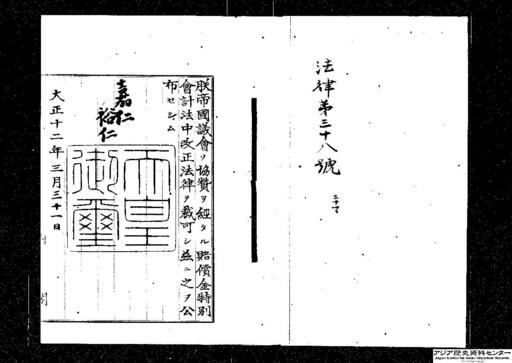 法律第三十八號
朕帝國議會ノ協贊ヲ經タル賠償金特別
會計法中改正法律ヲ裁可シ茲ニ之ヲ公
布セシム
嘉仁
裕仁
天皇御璽
大正十二年三月三十一日
アジア歴史資料センター
Japan Center for Asian Historical Records